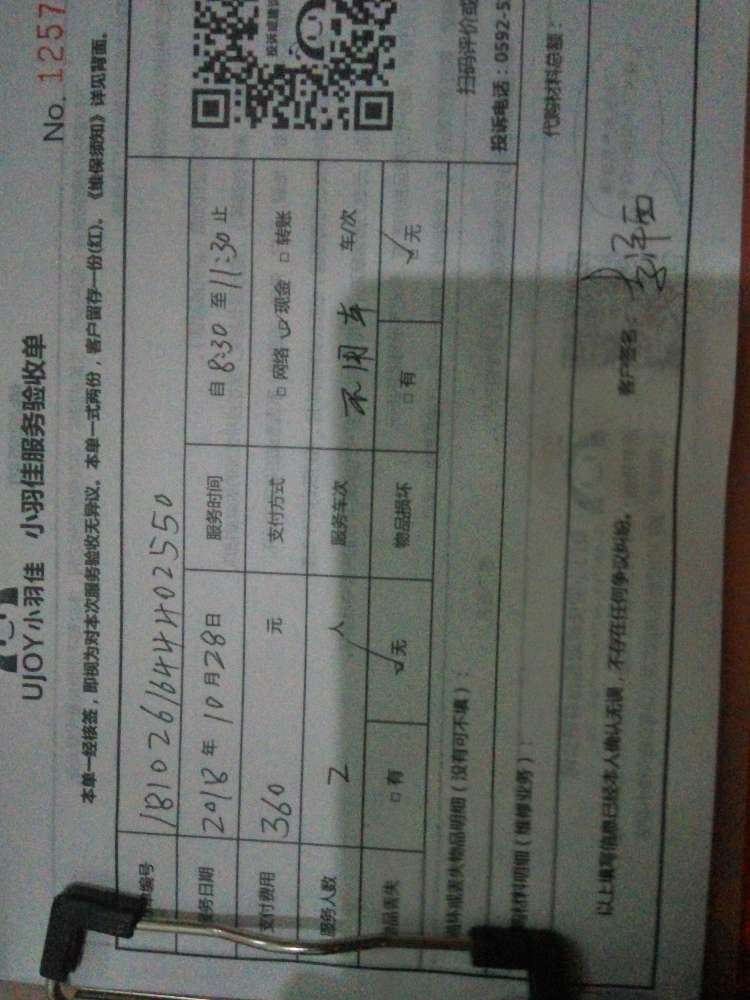 No. 1257
UJOY小羽佳 小羽佳服务验收单
本单一经核签，即视为对本次服务验收无异议。本单一式两份，客户留存一份(红)。《维保须知》详见背面。
单编号 18102616444402550
服务日期 2018年10月28日 服务时间 自8:30至11:30止
支付费用 360 元 支付方式 □网络 ☑现金 □转账
服务人数 2 人 服务车次 不用车 车/次
物品丢失 □有 ☑无 物品损坏 □有 ☑无
损坏或丢失物品明细（没有可不填）：
材料明细（维修业务）：
投诉或建议
扫码评价或
投诉电话：0592-5
代购材料总额：
以上填写信息已经本人确认无误，不存在任何争议纠纷。 客户签名：